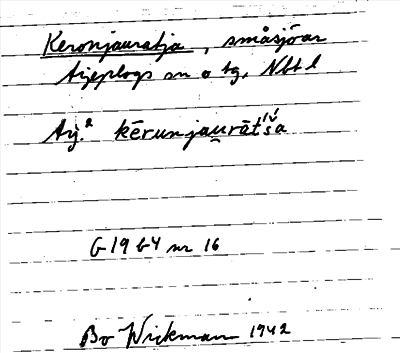 Keronjauratja, småsjöar
Arjeplogs sn o tg, Nbt l
Arj.² kērunjau̯rātśa
G 19 b 4 nr 16
Bo Wickman 1942